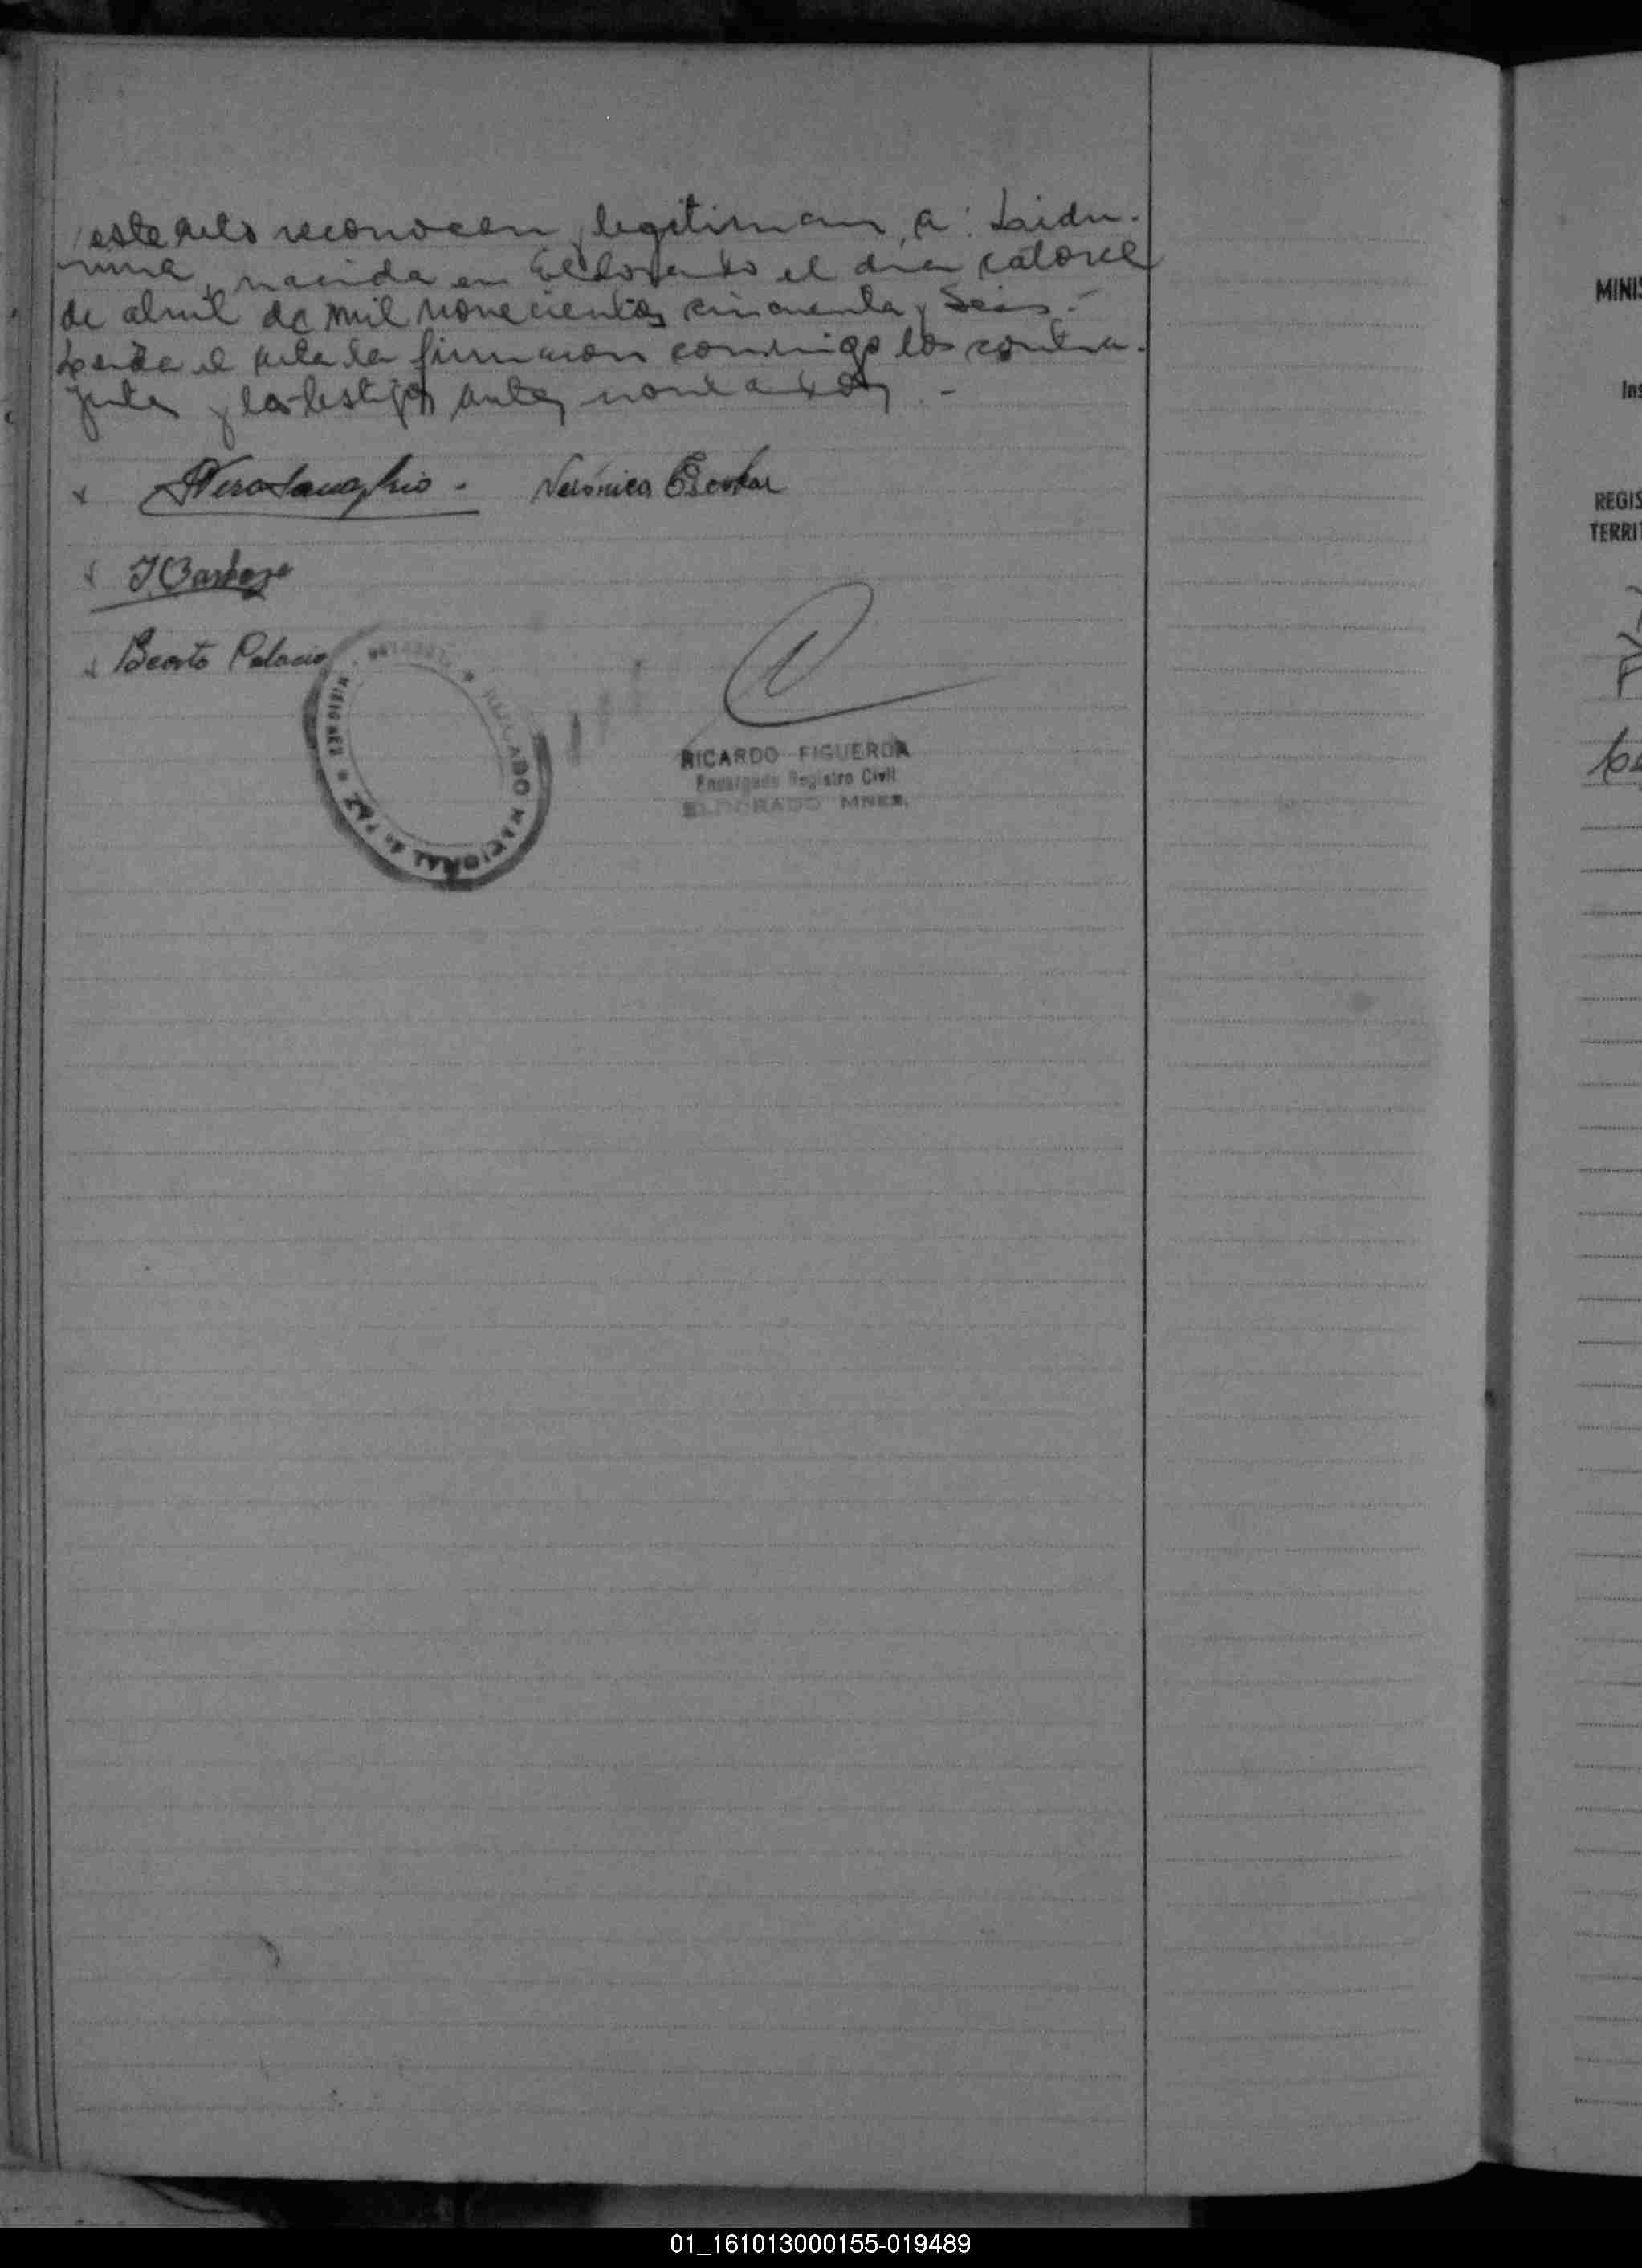 este acto reconocen y legitiman, a: Lidu-
vina, nacida en Eldorado el dia catorce
de abril de mil novecientos cincuenta y seis.-
Leida el acta la firmaron conmigo los contra-
yentes y los testigos antes nombrados.-
Verónica Escobar
J Barboza
Bearto Palacio
MISIONES * JUZGADO NACIONAL de PAZ *
RICARDO FIGUEROA
Encargado Registro Civil
ELDORADO MNES.
MINIS
Ins
REGIS
TERRIT
01_161013000155-019489